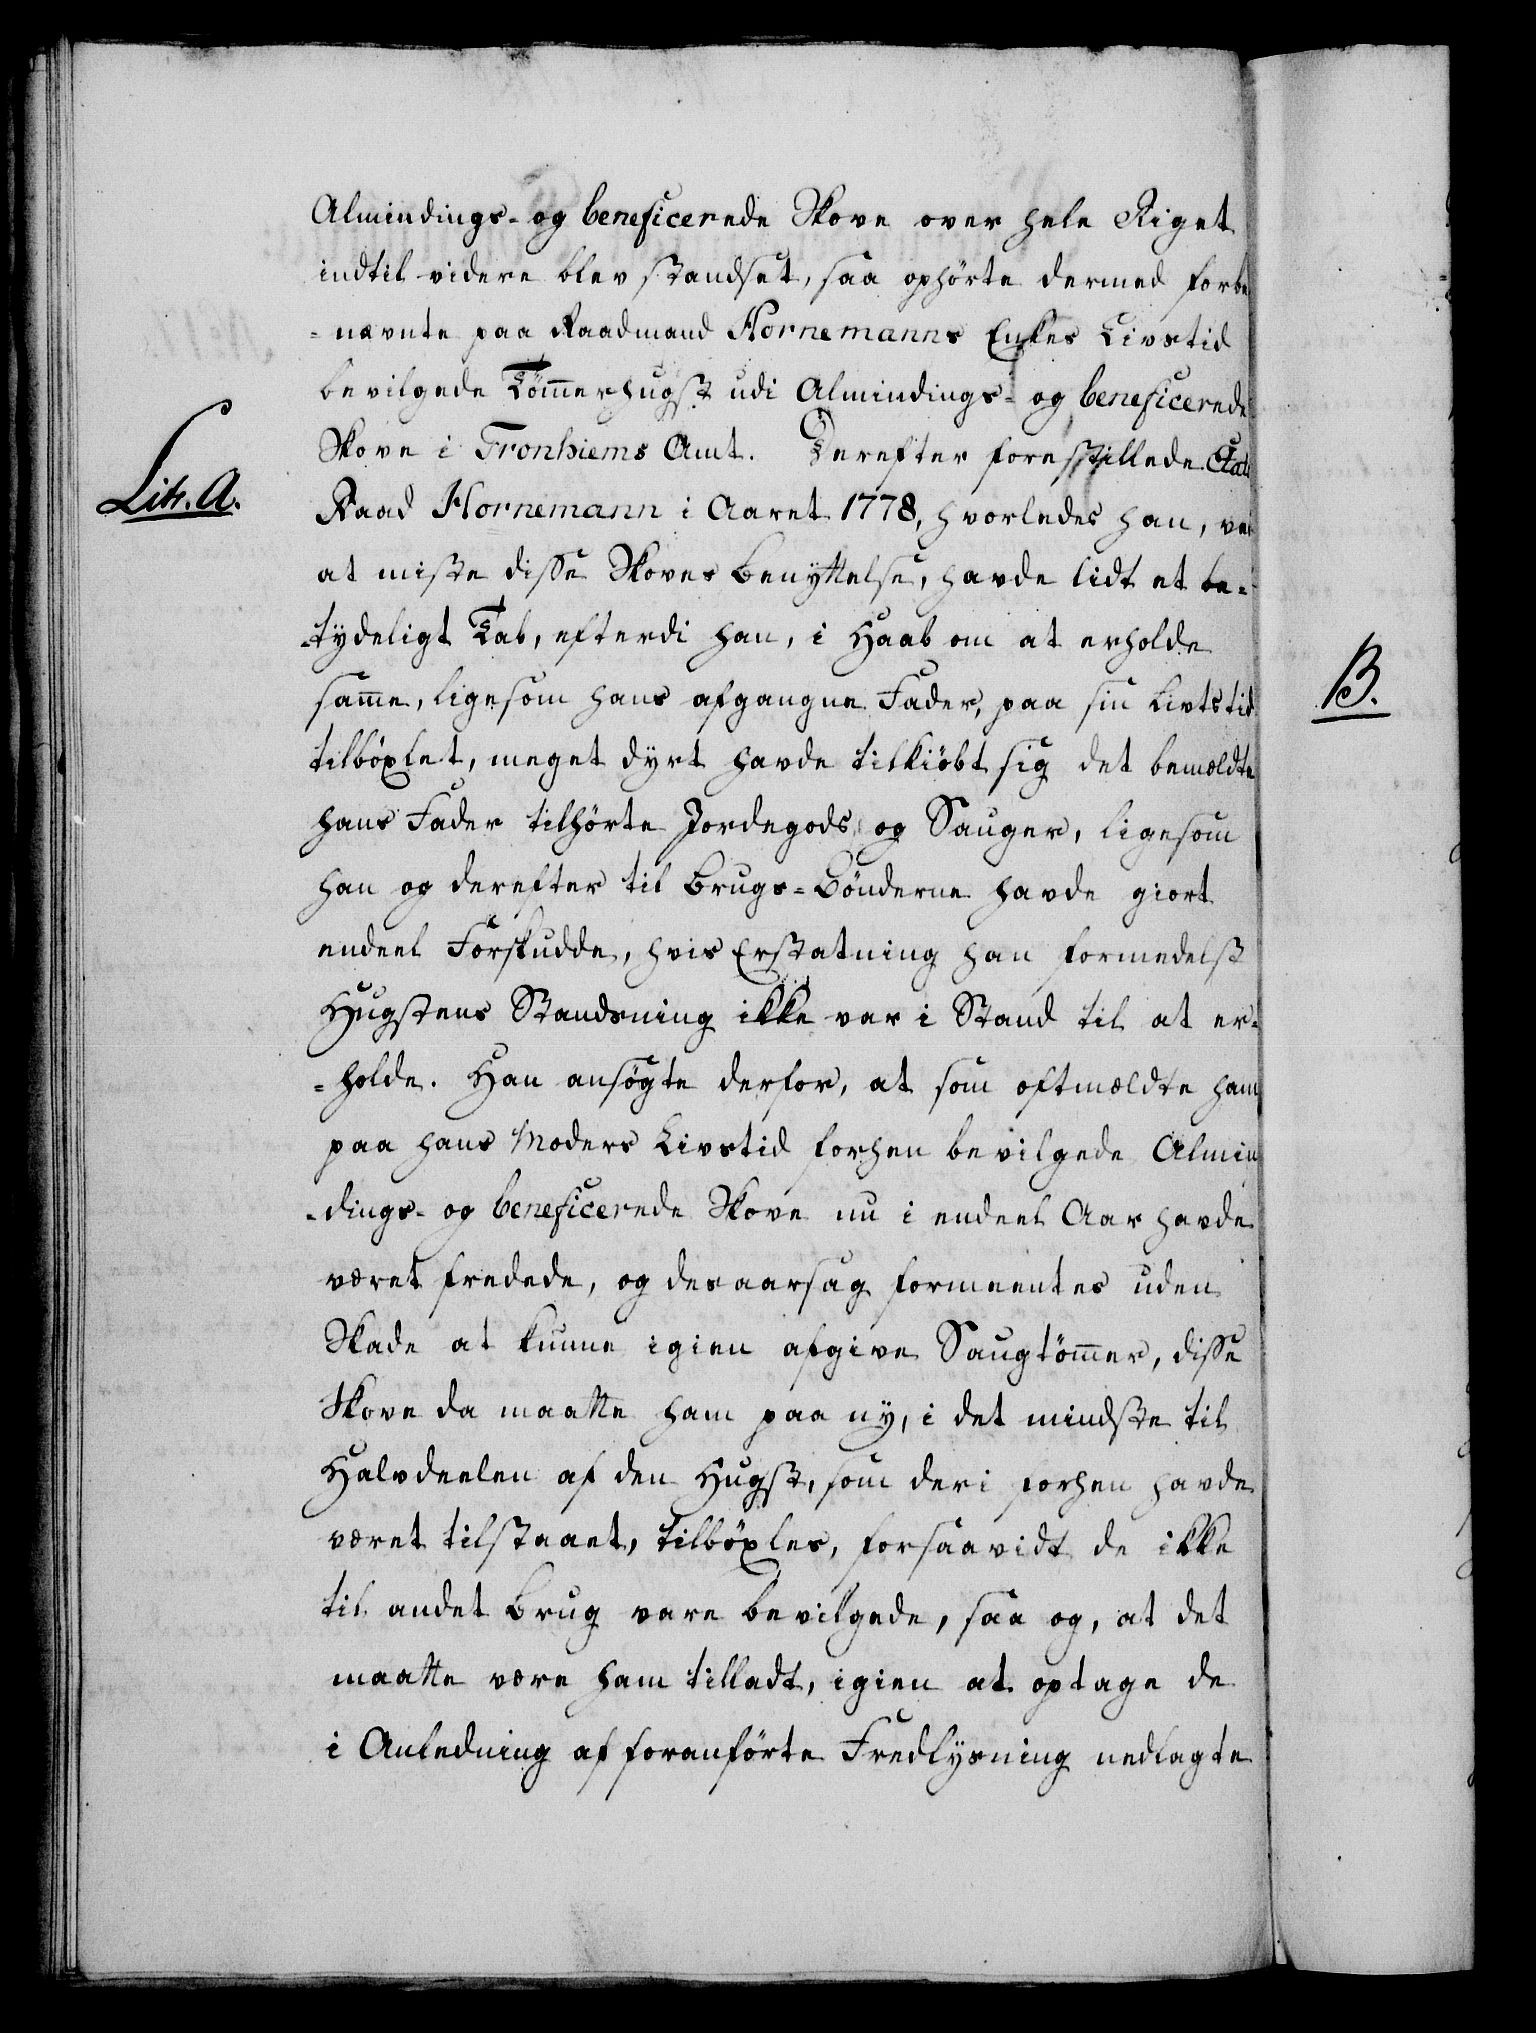 Almindings- og beneficerede Skove over hele Riget
indtil videre blev standset, saa ophörte dermed forbe
-nævnte paa Raadmand Hornemanns Enkes Livstid
bevilgede Tömmerhugst udi Almindings- og beneficerede
Skove i Tronhiems Amt. Derefter forestillede Etats
Litr. A.
Raad Hornemann i Aaret 1778, hvorledes han, ved
at miste disse Skoves Benyttelse, havde lidt et be-
-tydeligt Tab, efterdi han, i Haab om at erholde
samme, ligesom hans afgangne Fader, paa sin Livstid
tilböxlet, meget dyrt havde tilkiöbt sig det bemældte
hans Fader tilhörte Jordegods og Sauger, ligesom
han og derefter til Brugs-Bönderne havde giort
endeel Forskudde, hvis Erstatning han formedelst
Hugstens Standsning ikke var i Stand til at er-
-holde. Han ansögte derfor, at som oftmældte ham
paa hans Moders Livstid forhen bevilgede Almin
-dings- og beneficerede Skove nu i endeel Aar havde
været fredede, og desaarsag formeentes uden
Skade at kunne igien afgive Saugtömmer, disse
Skove da maatte ham paa ny, i det mindste til
Halvdeelen af den Hugst, som deri forhen havde
været tilstaaet, tilböxles, forsaavidt de ikke
til andet Brug vare bevilgede, saa og, at det
maatte være ham tilladt, igien at optage de
i Anledning af foranförte Fredlysning nedlagte
B.